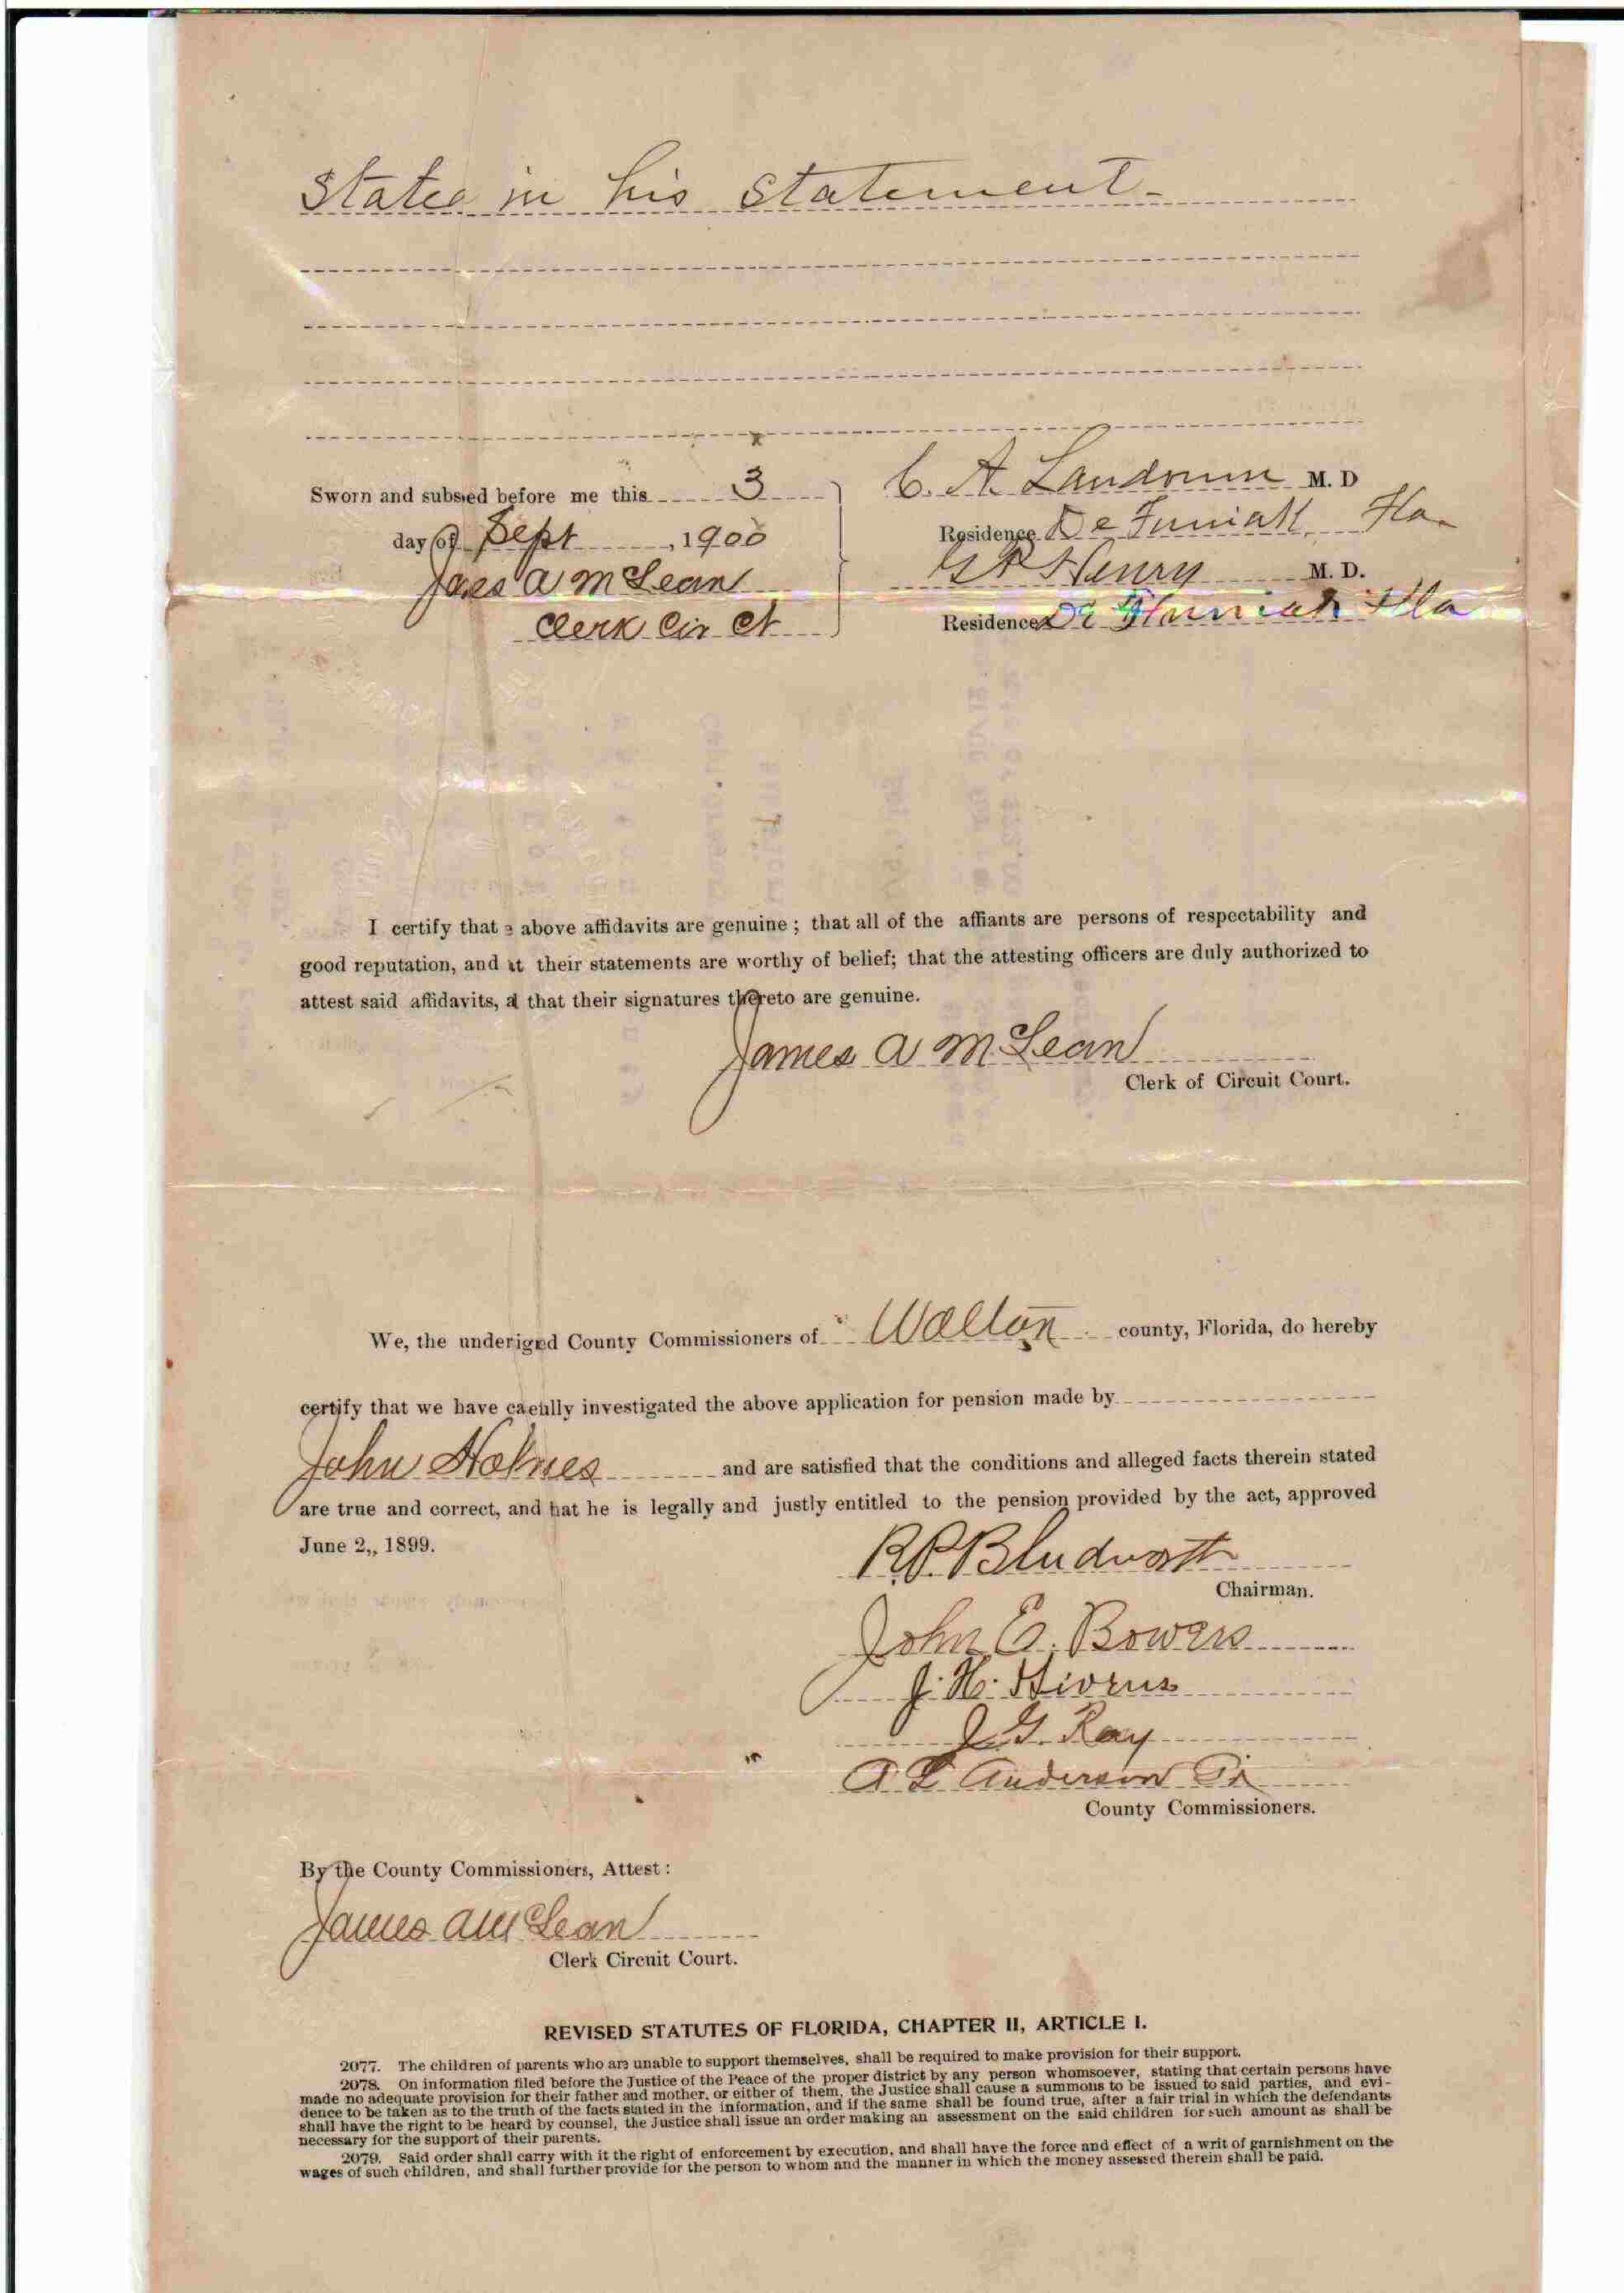 States in his statement-
Sworn and subs ed before me this 3
day of Sept, 1900
Jas A McLean
Clerk Cir Ct
C. A. Landrum M. D
Residence De Funiak, Fla.
Henry M. D.
Residence De Funiak Fla
I certify that e above affidavits are genuine ; that all of the affiants are persons of respectability and
good reputation, and at their statements are worthy of belief; that the attesting officers are duly authorized to
attest said affidavits, d that their signatures thereto are genuine.
James A McLean
Clerk of Circuit Court.
We, the undersigned County Commissioners of Walton county, Florida, do hereby
certify that we have carefully investigated the above application for pension made by
John Holmes and are satisfied that the conditions and alleged facts therein stated
are true and correct, and hat he is legally and justly entitled to the pension provided by the act, approved
June 2,, 1899.
R. P. Bludworth
Chairman.
John E. Bowers
J. H.
J. G. Ray
A L Anderson
County Commissioners.
By the County Commissioners, Attest :
James A McLean
Clerk Circuit Court.
REVISED STATUTES OF FLORIDA, CHAPTER II, ARTICLE I.
2077. The children of parents who are unable to support themselves, shall be required to make provision for their support.
2078. On information filed before the Justice of the Peace of the proper district by any person whomsoever, stating that certain persons have
made no adequate provision for their father and mother, or either of them, the Justice shall cause a summons to be issued to said parties, and evi-
dence to be taken as to the truth of the facts stated in the information, and if the same shall be found true, after a fair trial in which the defendants
shall have the right to be heard by counsel, the Justice shall issue an order making an assessment on the said children for such amount as shall be
necessary for the support of their parents.
2079. Said order shall carry with it the right of enforcement by execution, and shall have the force and effect of a writ of garnishment on the
wages of such children, and shall further provide for the person to whom and the manner in which the money assessed therein shall be paid.